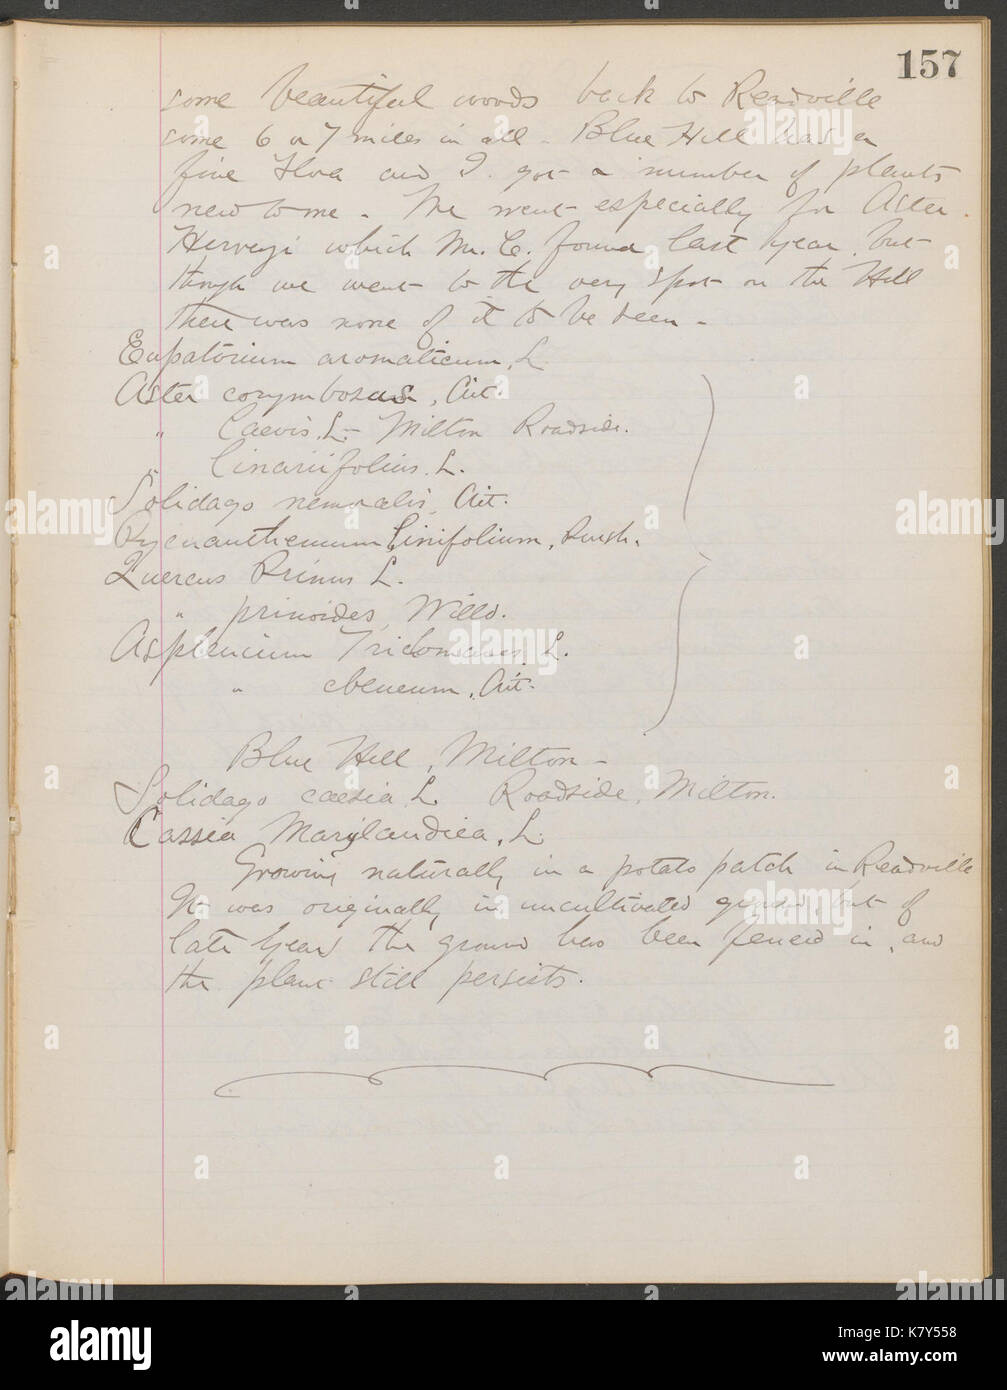 157
some beautiful woods back to Readville
some 6 or 7 miles in all - Blue Hill has a
fine Flora and I got a number of plants
new to me. We went especially for Aster
Herveyi which Mr. C. found last year, but
though we went to the very spot on the Hill
there was none of it to be seen -
Eupatorium aromaticum, L.
Aster corymbosus, Ait.
" Laevis, L - Milton Roadside.
" linariifolius, L.
Solidago nemoralis, Ait.
Pycnanthemum linifolium, Pursh.
Quercus Prinus L.
" prinoides, Willd.
Asplenium Trichomanes, L.
" ebeneum, Ait.
Blue Hill, Milton -
Solidago caesia, L Roadside, Milton.
Cassia Marylandica, L.
Growing naturally in a potato patch in Readville
It was originally in uncultivated ground, but of
late years the ground has been fenced in, and
the plant still persists.
alamy
alamy stock photo
K7Y558
www.alamy.com